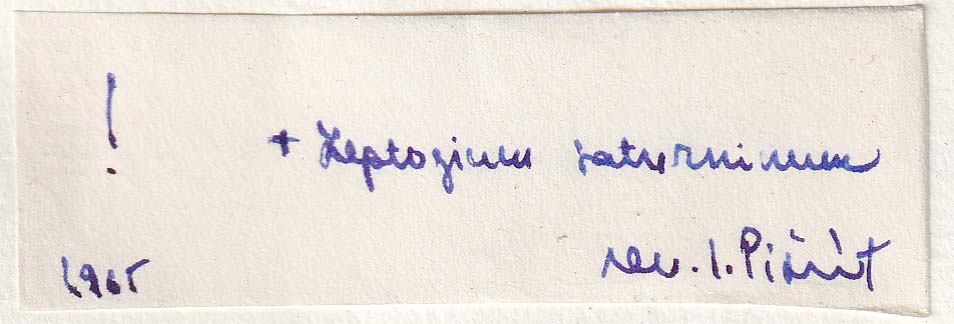 ! + Leptogium saturninum
rev. I. Pišút
1965